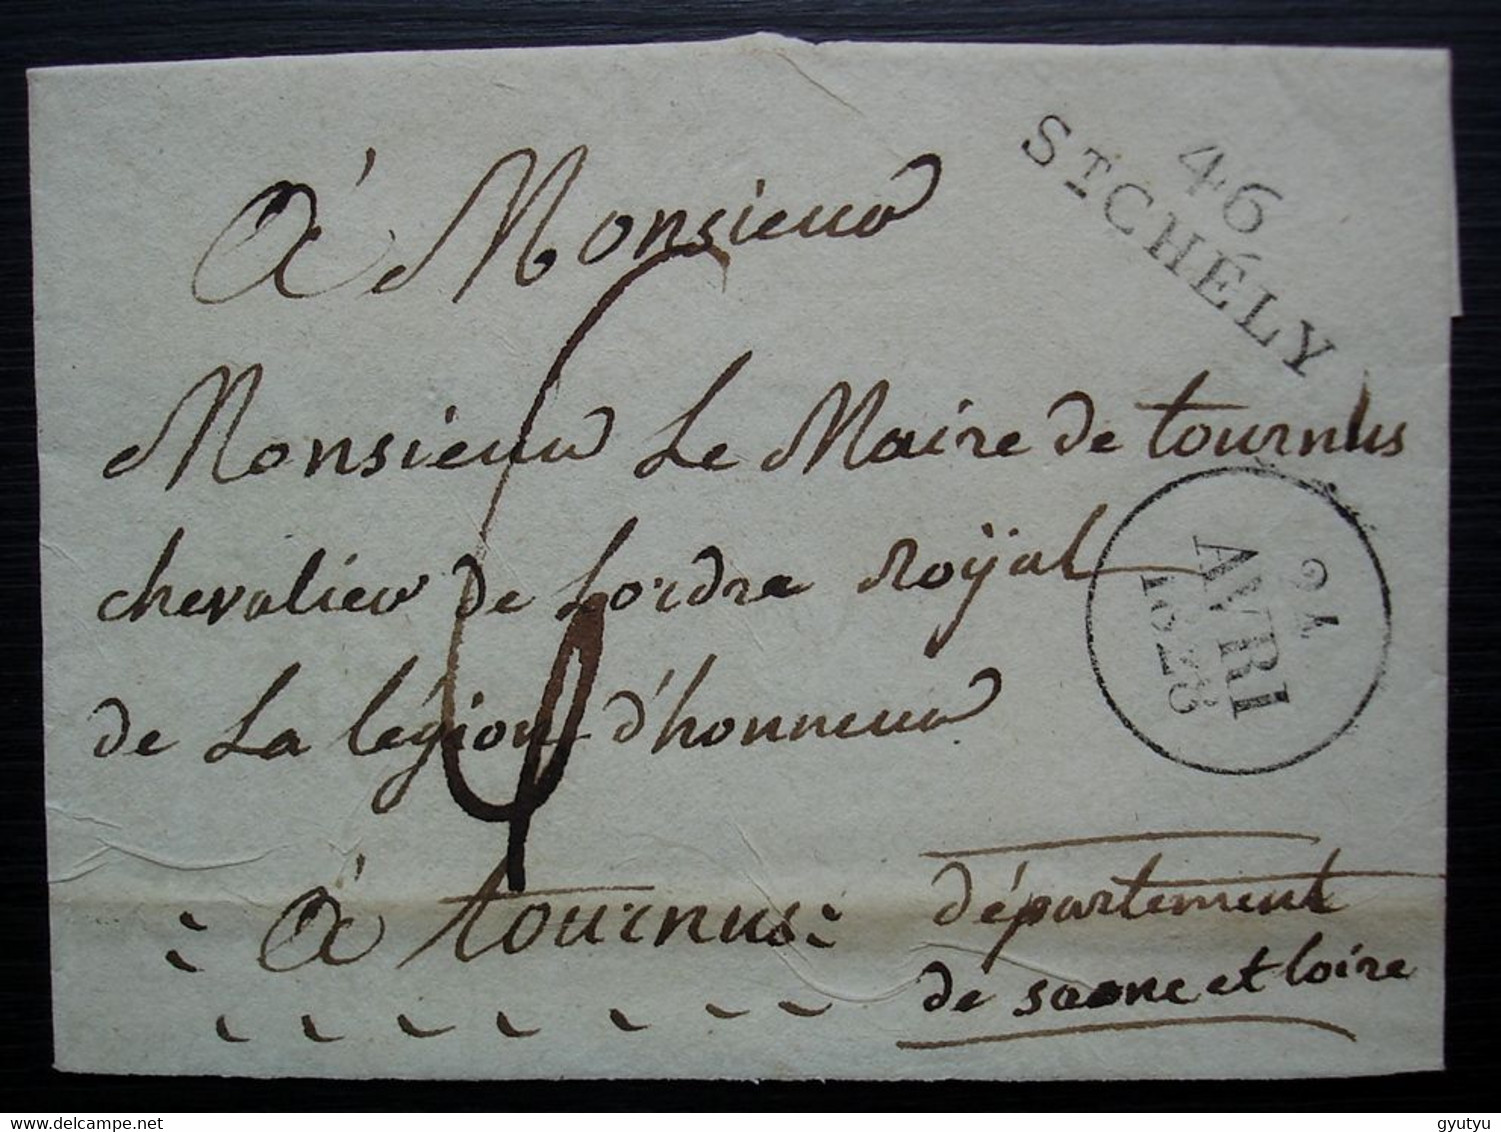 46
ST CHÉLY
à Monsieur
Monsieur Le Maire de tournus
chevalier de Lordre Royal
de La légion d'honneur
24
AVRI
1828
6
à tournus
département
de saone et loire
delcampe.net
gyutyu